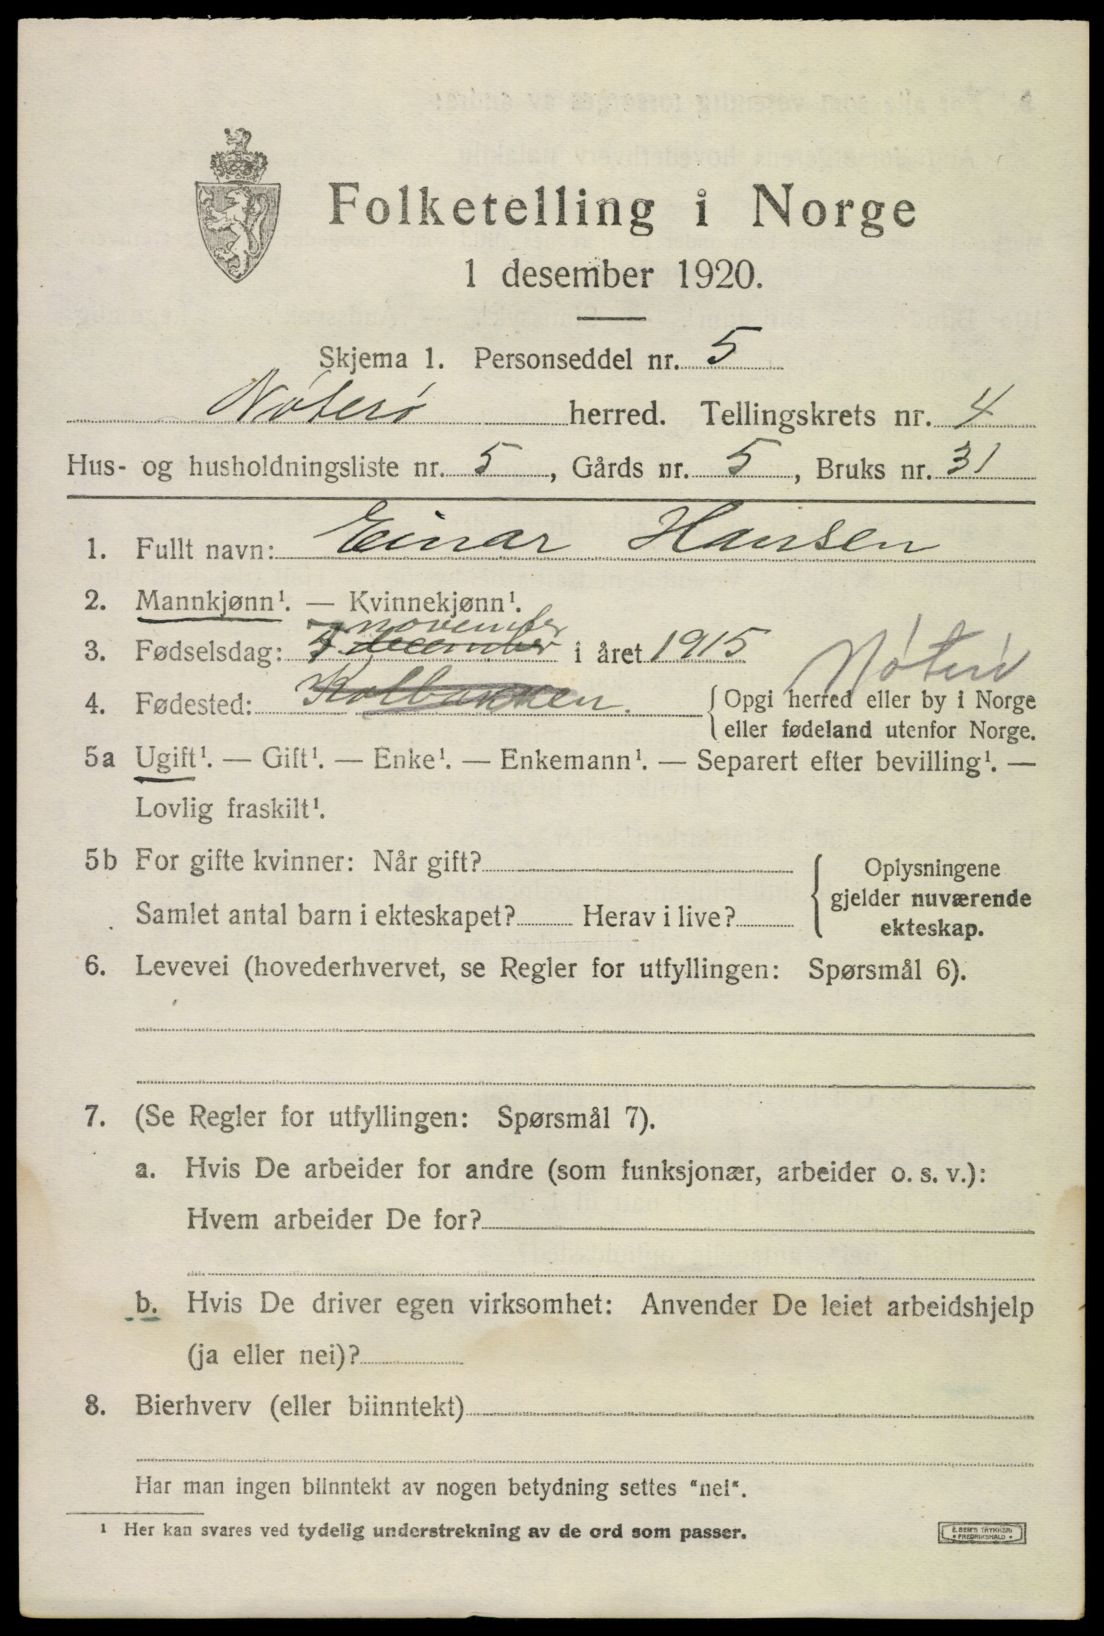 Folketelling i Norge
1 desember 1920.
Skjema 1. Personseddel nr. 5
Nøterø herred. Tellingskrets nr. 4
Hus- og husholdningsliste nr. 5, Gårds nr. 5, Bruks nr. 31
1. Fullt navn: Einar Hansen
2. Mannkjønn¹. — Kvinnekjønn¹.
7 november
3. Fødselsdag: december i året 1915
Nøterö
4. Fødested: Kolbakken. { Opgi herred eller by i Norge
eller fødeland utenfor Norge.
5a Ugift¹. — Gift¹. — Enke¹. — Enkemann¹. — Separert efter bevilling¹. —
Lovlig fraskilt¹.
5b For gifte kvinner: Når gift?
Samlet antal barn i ekteskapet? Herav i live?
Oplysningene
gjelder nuværende
ekteskap.
6. Levevei (hovederhvervet, se Regler for utfyllingen: Spørsmål 6).
7. (Se Regler for utfyllingen: Spørsmål 7).
a. Hvis De arbeider for andre (som funksjonær, arbeider o. s. v.):
Hvem arbeider De for?
b. Hvis De driver egen virksomhet: Anvender De leiet arbeidshjelp
(ja eller nei)?
8. Bierhverv (eller biinntekt)
Har man ingen biinntekt av nogen betydning settes "nei".
¹ Her kan svares ved tydelig understrekning av de ord som passer.
E. SEM'S TRYKKERI
• FREDRIKSHALD •